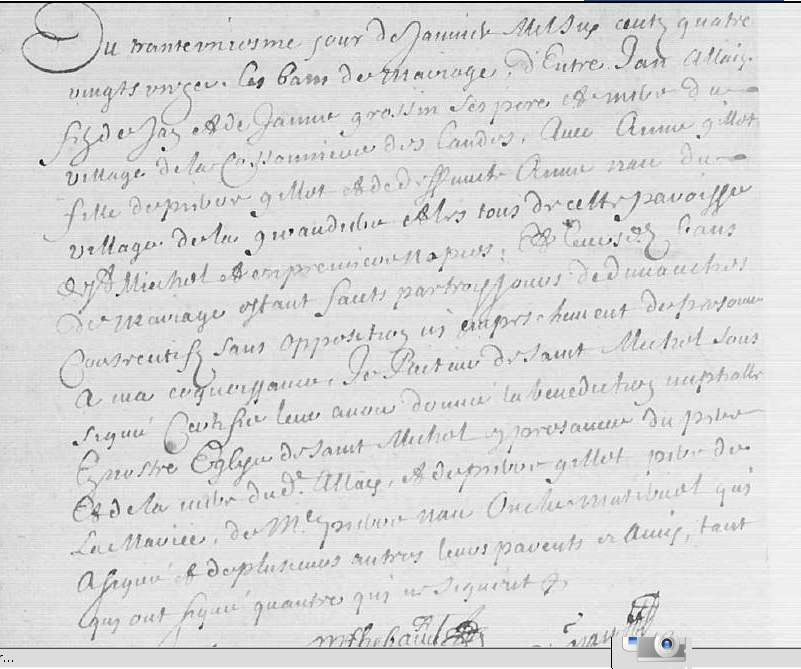 Du trante uniesme jour de Janvier Mil Six cents quatre
vingts unze. les bans de mariage d'Entre Jan Allaiz
filz de Jan et de Janne grossin ses pere et mere du
village de la Cossonnieve des Landes, Avec Anne gillot
fille de pierre gillot et de deffuncte Anne nau du
village de la et les tous de cette paroisse
de St Michel et en premieres nopces; Et leurs dz bans
de mariage estant faits par troys jours de dimanches
Consecutifz sans opposition ni empeschement de personne
A ma cognoissance, Je de saint Michel sous
signé Certifie leur avoir donné la benediction nuptialle
En nostre Eglyse de saint Michel en presance du pere
Et de la mere du d. Allaiz, et de pierre gillot pere de
La Mariée, de Me pierre nau Oncle maternel qui
A signé et de plusieurs autres leurs parents et Amis, tant
qui ont signé quautre qui ne signent
r...